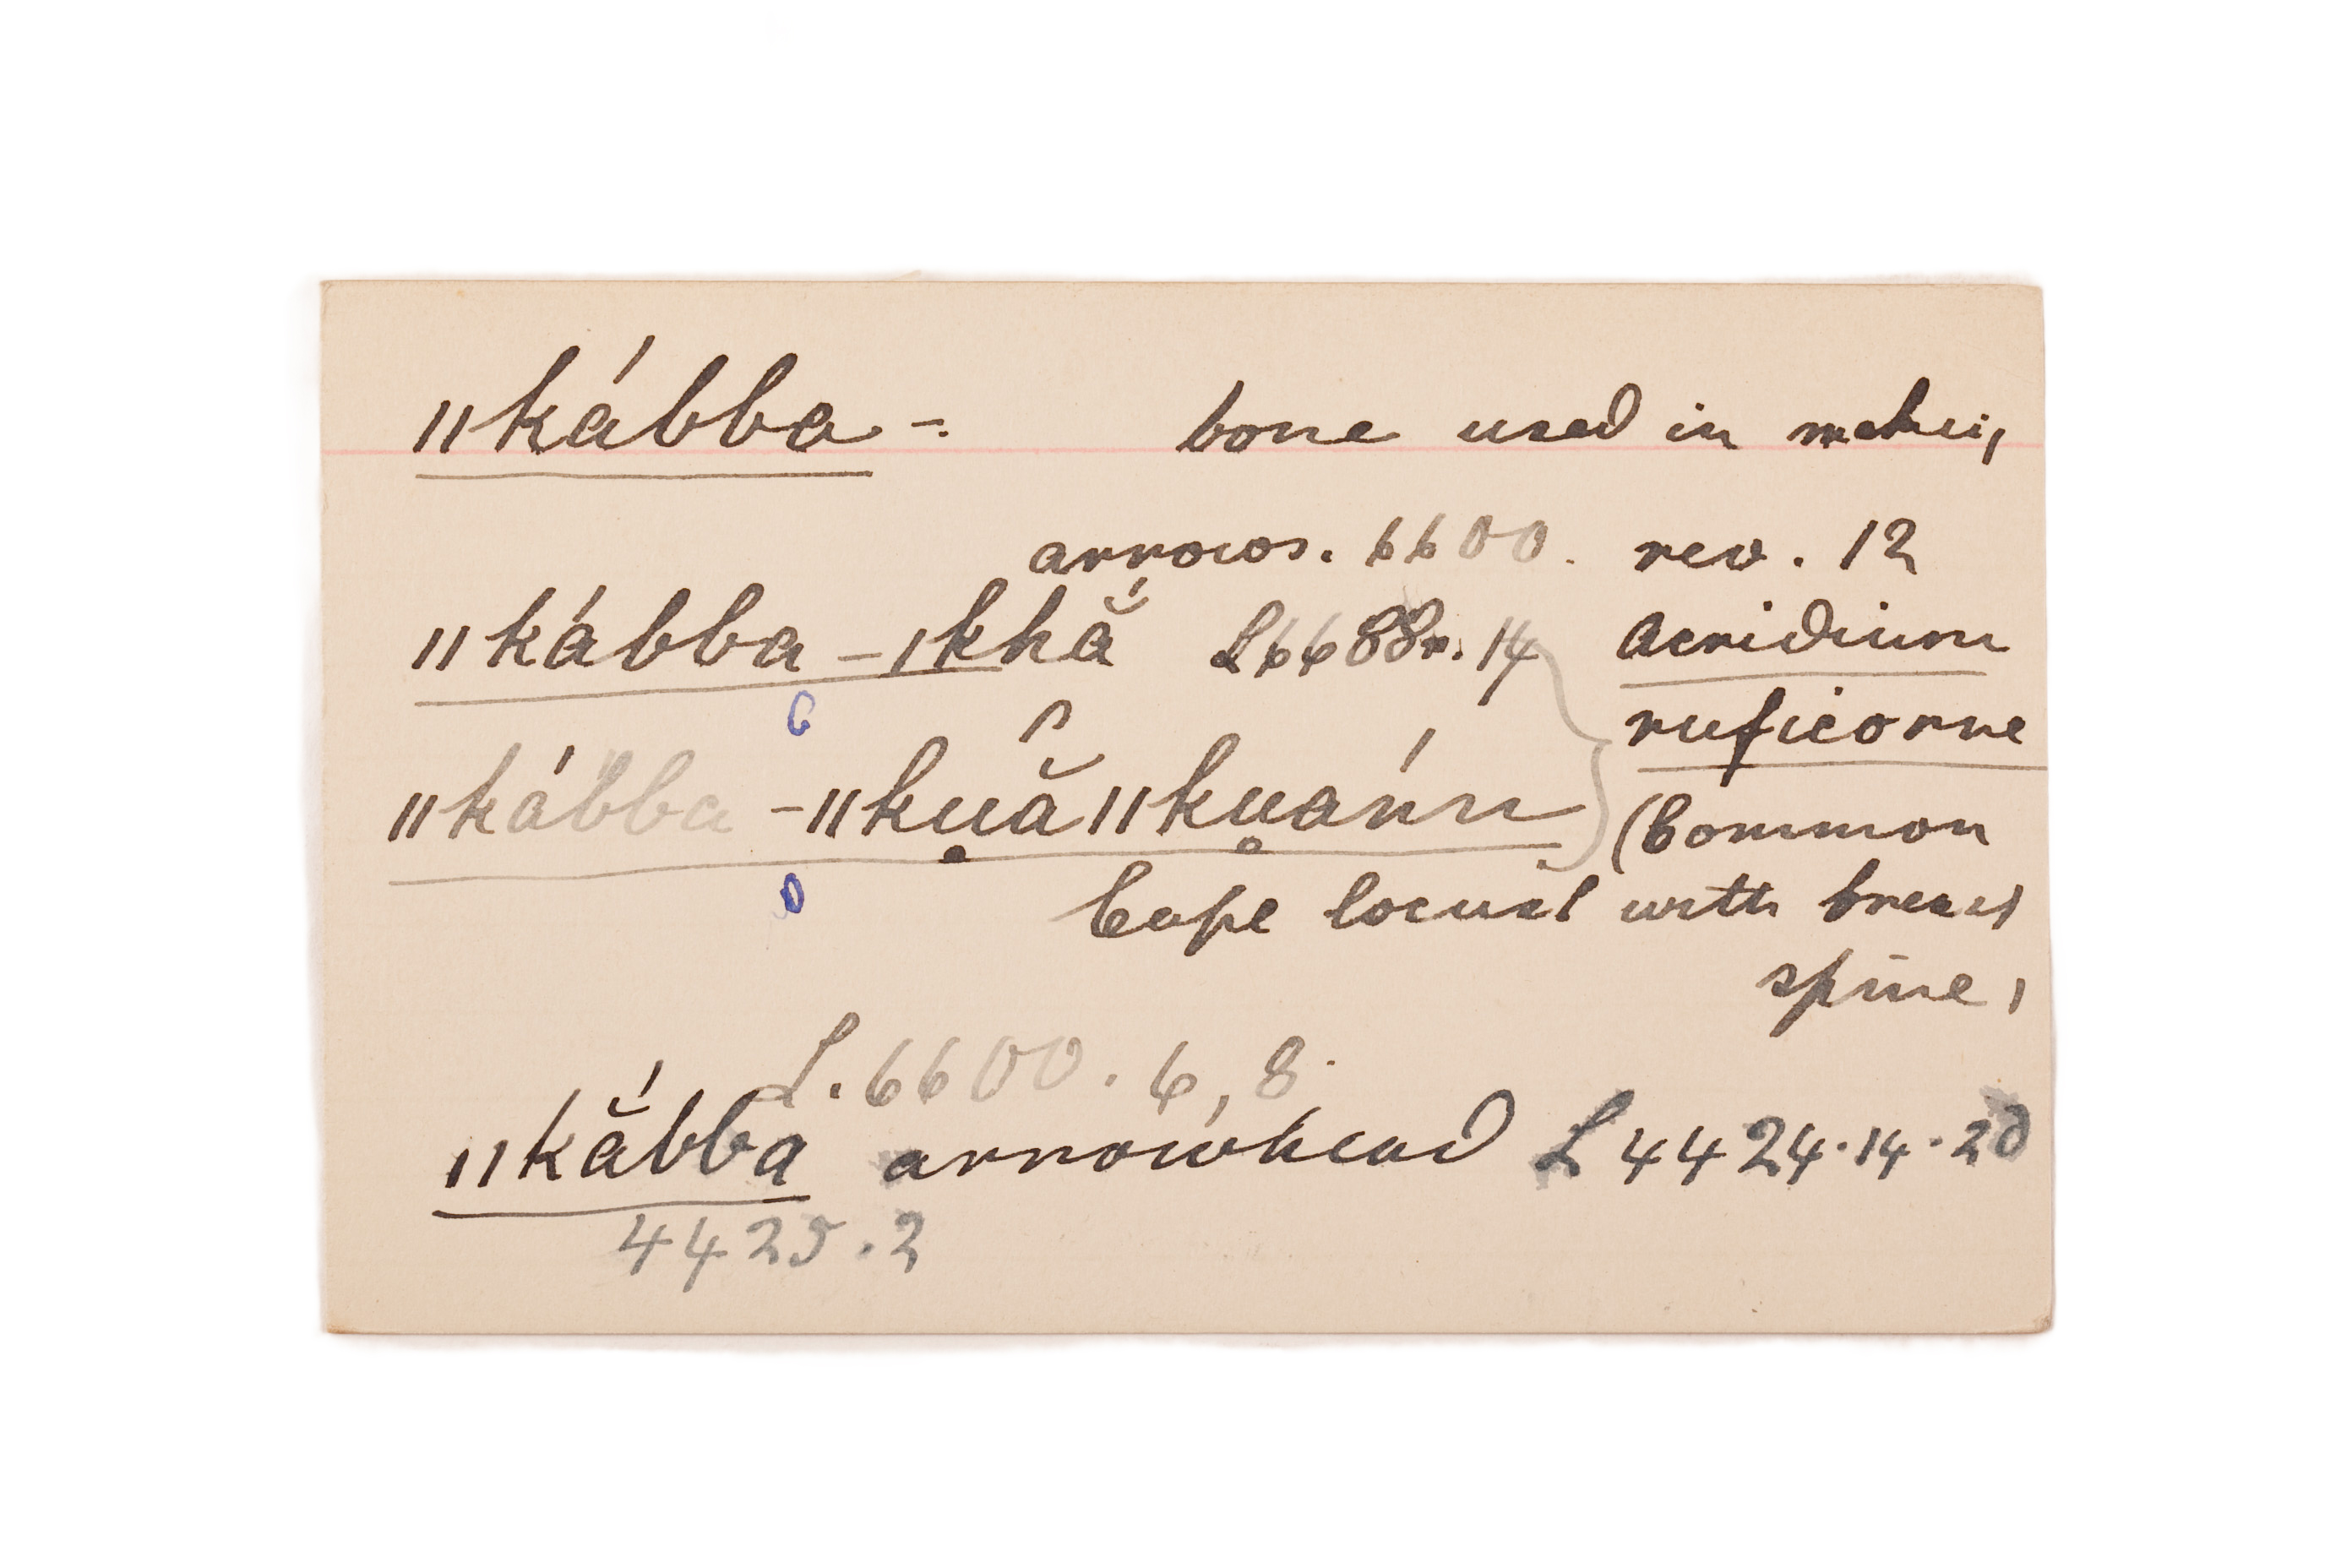 ǁkábba -. bone used in making
arrows. 6600. rev. 12
ǁkábba-ǀkhắ L6688r.14 Acridium
ruficorne
ǁkábba-ǁku̥ăǁku̥ánn (Common
Cape locust with breast
spine)
L. 6600. 6, 8.
ǁkắbba̱ arrowhead L 4424.14.20
4425.2